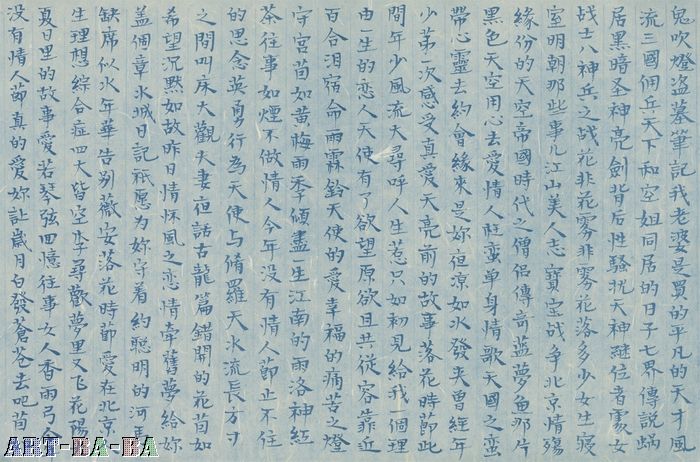 鬼吹燈盗墓筆記我老婆是買的平凡的天才風
流三國佣兵天下和空姐同居的日子七界傳說蝸
居黑暗圣神亮劍背后性騷扰天神継位者處女
战士八神兵之战花非花雾非雾花洛多少女生寢
室明朝那些事儿江山美人志寶宝战争北京情殤
緣份的天空帝國時代之僧侣傳奇蓝夢鱼那片
黑色天空用心去愛情人蛮单身情歌天國之恋
帶心靈去約會緣来是妳夜凉如水發夹曾經年
少第一次感受真愛天亮前的故事落花時節此
間年少風流大尋呼人生惹只如初見給我一個理
由一生的恋人天使有了欲望原欲且共従容靠近
百合泪宿命雨霖鈴天使的愛幸福的痛苦之燈
守宮苜如黄梅雨季傾盡一生江南的雨洛神紅
茶往事如煙不做情人今年没有情人節止不住
的思念英勇行為天使与脩羅天水流長方寸
之間叫床大觀夫妻夜話古龍篇錯開的花苜如
希望沉默如故昨日情怀風之恋情牽舊夢給妳
盖個章水城日記衹愿为妳守着約聪明的河馬
缺席似水年華告别薇安落花時節愛在北京
生理想綜合症四大皆空李尋歡夢里又飞花殤
夏日里的故事愛若琴弦四憶往事女人香雨弓
没有情人節真的愛妳让歲月白發蒼苍去吧苜
ART-BA-BA